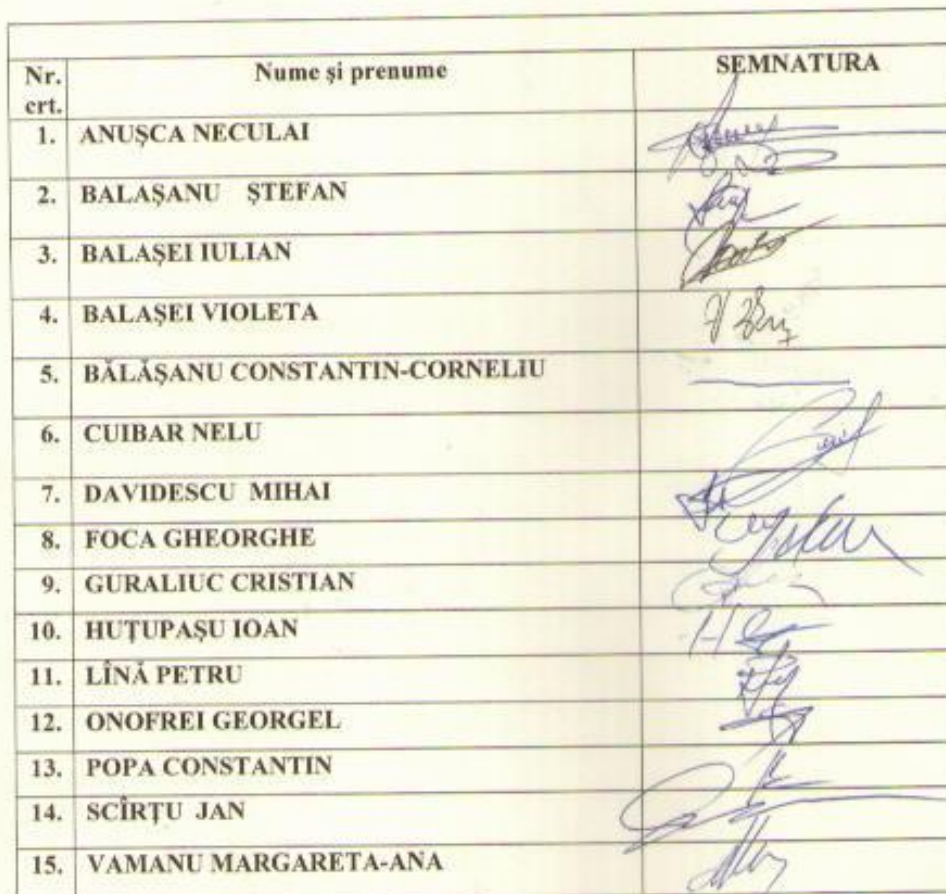 Nr. Nume și prenume SEMNATURA
crt.
1. ANUȘCA NECULAI
2. BALAȘANU ȘTEFAN
3. BALAȘEI IULIAN
4. BALAȘEI VIOLETA
5. BĂLĂȘANU CONSTANTIN-CORNELIU
6. CUIBAR NELU
7. DAVIDESCU MIHAI
8. FOCA GHEORGHE
9. GURALIUC CRISTIAN
10. HUȚUPAȘU IOAN
11. LÎNĂ PETRU
12. ONOFREI GEORGEL
13. POPA CONSTANTIN
14. SCÎRȚU JAN
15. VAMANU MARGARETA-ANA